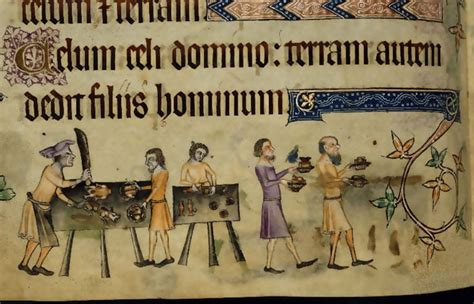 celum ⁊ terram
Celum celi domino: terram autem
dedit filiis hominum